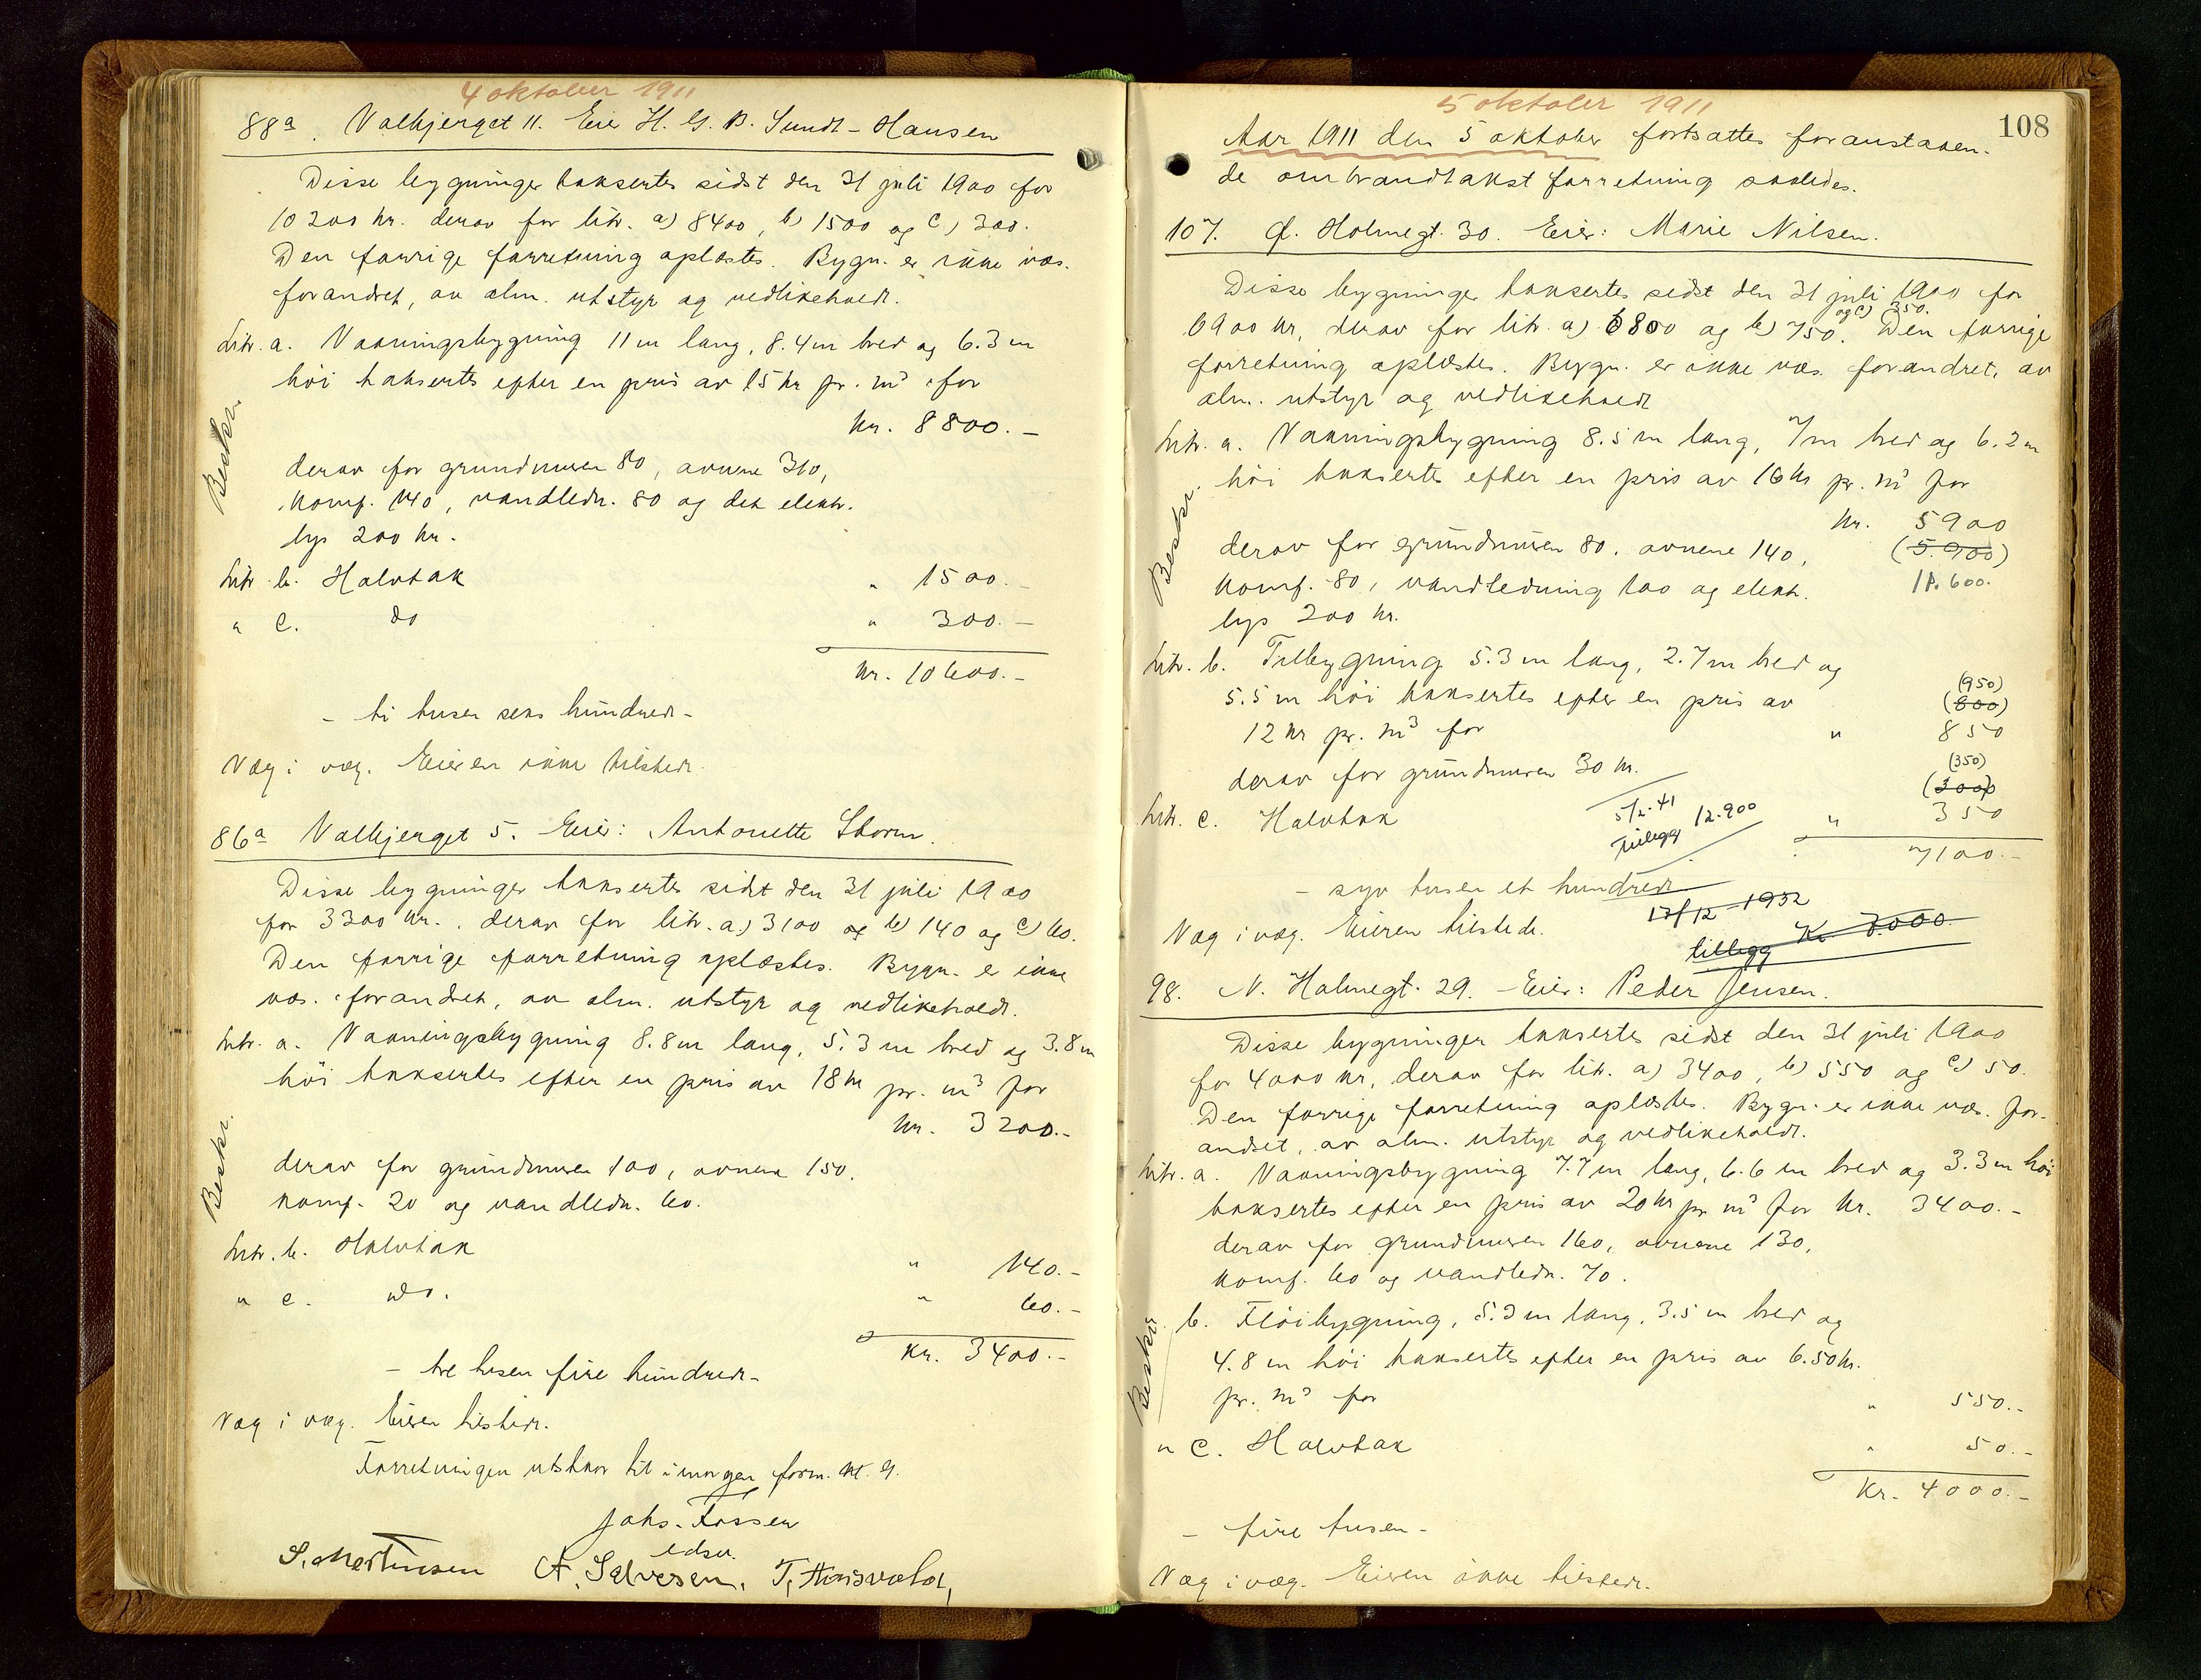 4 oktober 1911
88a. Valbjerget 11. Eier H. G. B. Sundt-Hansen
Disse bygninger taksertes sidst den 31 juli 1900 for
10200 kr. derav for litr. a) 8400, b) 1500 og c) 300.
Den forrige forretning oplæstes. Bygn. er ikke væs.
forandret, av alm. utstyr og vedlikeholdt.
Litr. a. Vaaningsbygning 11 m lang, 8.4 m bred og 6.3 m
høi taksertes efter en pris av 15 kr pr. m³ for
kr. 8800.-
Beskr.
derav for grundmuren 80, ovnene 310,
komf. 140, vandledn. 80 og det elektr.
lys 200 kr.
Litr. b. Halvtak " 1500.-
" c. do " 300.-
kr. 10600.-
- ti tusen seks hundrede -
Væg i væg. Eieren ikke tilstede.
86a Valbjerget 5. Eier: Antonette Storm.
Disse bygninger taksertes sidst den 31 juli 1900
for 3300 kr., derav for litr. a.) 3100 og b) 140 og c) 60.
Den forrige forretning oplæstes. Bygn. er ikke
væs. forandret, av alm. utstyr og vedlikeholdt.
Litr. a. Vaaningsbygning 8.8 m lang, 5.3 m bred og 3.8 m
høi taksertes efter en pris av 18 kr pr. m³ for
kr. 3200.-
Beskr.
derav for grundmuren 100, ovnene 150,
komf. 20 og vandledn. 60.
Litr. b. Halvtak " 140.-
" c. do. " 60.-
Kr. 3400.-
- tre tusen fire hundrede -
Væg i væg. Eieren tilstede.
Forretningen utsattes til imorgen form. kl. 9.
Johs. Fossen
edsv.
S. Mortensen A. Salvesen,
5 oktober 1911
108
Aar 1911 den 5 oktober fortsattes foranstaaen-
de ombrandtakst forretning saaledes.
107. Ø. Holmegt. 30. Eier: Marie Nilsen.
Disse bygninger taksertes sidst den 31 juli 1900 for
og c) 350.
6900 kr, derav for litr. a) 6800 og b) 750. Den forrige
forretning oplæstes. Bygn. er ikke væs. forandret, av
alm. utstyr og vedlikeholdt
Litr. a. Vaaningsbygning 8.5 m lang, 7 m bred og 6.2 m
høi taksertes efter en pris av 16 kr pr. m³ for
Beskr.
kr. 5900
derav for grundmuren 80, ovnene 140, (5.900)
komf. 80, vandledning 100 og elektr. 11.600.
lys 200 kr.
Litr. b. Tilbygning 5.3 m lang, 2.7 m bred og
5.5 m høi taksertes efter en pris av (950) (800)
12 kr pr. m³ for " 850
derav for grundmuren 30 kr. (350) (300)
Litr. c. Halvtak " 350
5/2-41
Tillegg 12.900
7100.-
- syv tusen et hundrede
17/12-1932
Væg i væg. Eieren tilstede.
tillegg Kr. 7.000.
98. N. Holmegt. 29. Eier: Peder Jensen.
Disse bygninger taksertes sidst den 31 juli 1900
for 4000 kr, derav for litr. a) 3400, b) 550 og c) 50.
Den forrige forretning oplæstes. Bygn. er ikke væs. for-
andret, av alm. utstyr og vedlikeholdt.
Litr. a. Vaaningsbygning 7.7 m lang, 6.6 m bred og 3.3 m høi
taksertes efter en pris av 20 kr pr m³ for kr. 3400.-
derav for grundmuren 160, ovnene 130,
komf. 60 og vandledn. 70.
Beskr.
b. Fløibygning, 5.3 m lang, 3.5 m bred og
4.8 m høi taksertes efter en pris av 6.50 kr.
pr. m³ for " 550.-
" c. Halvtak " 50.-
Kr. 4000.-
- fire tusen -
Væg i væg. Eieren ikke tilstede.